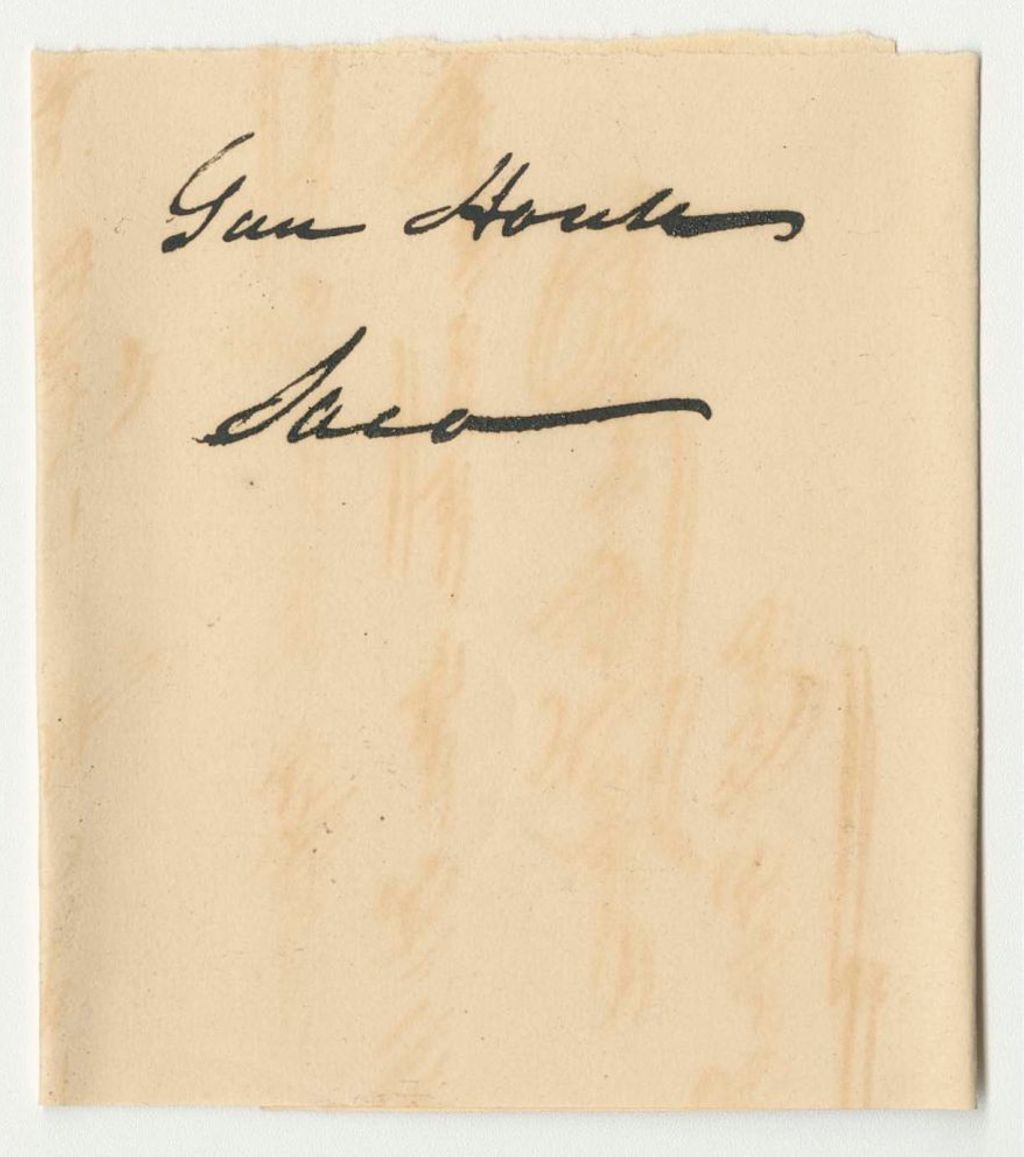 Gun House
Saco